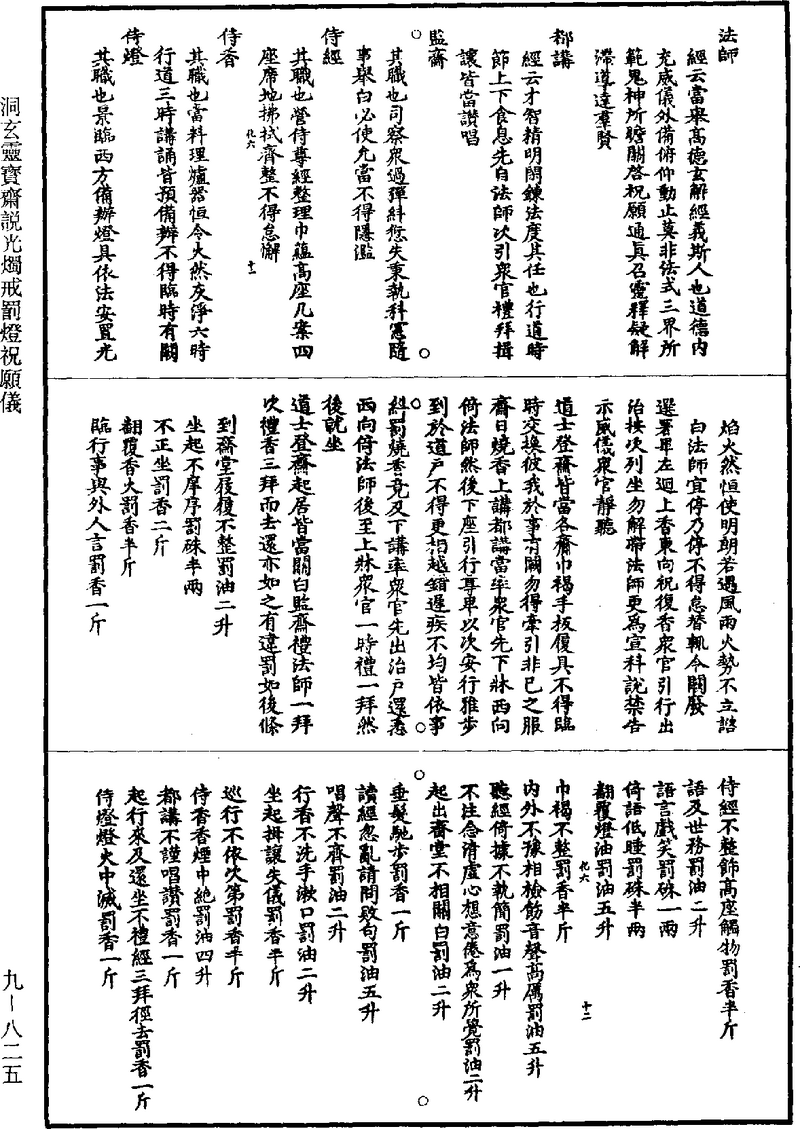 法師
經云當舉高德玄解經義斯人也道德內
充威儀外備俯仰動止莫非法式三界所
範鬼神所瞻關啓祝願通真召靈釋疑解
滯導達羣賢
都講
經云才智精明閑鍊法度其任也行道時
節上下食息先自法師次引衆官禮拜揖
讓皆當讚唱
監齋
其職也司察衆過彈糾愆失秉執科憲隨
事舉白必使允當不得隱濫
侍經
其職也營侍尊經整理巾蘊高座几案四
座席地拂拭齊整不得怠懈
九六
十一
侍香
其職也當料理爐器恒令火然灰淨六時
行道三時講誦皆預備辦不得臨時有闕
侍燈
其職也景臨西方備辦燈具依法安置光
焰火然恒使明朗若遇風雨火勢不立諮
白法師宜停乃停不得怠替輒令闕廢
選署畢左迴上香東向祝復香衆官引行出
治按次列坐勿解帶法師更爲宣科說禁告
示威儀衆官靜聽
道士登齋皆當各齎巾褐手板履具不得臨
時交換彼我於事有闕勿得牽引非已之服
齋日燒香上講都講當率衆官先下牀西向
倚法師然後下座引行尊卑以次安行雅步
到於道戶不得更相越錯遲疾不均皆依事
糾罰燒香竟及下講率衆官先出治戶還悉
西向倚法師後至上牀衆官一時禮一拜然
後就坐
道士登齋起居皆當關白監齋禮法師一拜
次禮香三拜而去還亦如之有違罰如後條
到齋堂屐履不整罰油二升
坐起不庠序罰硃半兩
不正坐罰香二斤
翻覆香火罰香半斤
臨行事與外人言罰香一斤
侍經不整飾高座觸物罰香半斤
語及世務罰油二升
語言戲笑罰硃一兩
倚語低睡罰硃半兩
翻覆燈油罰油五升
九六
十二
巾褐不整罰香半斤
內外不豫相檢飭音聲高厲罰油五升
聽經倚據不執簡罰油一升
不注念清虛心想意倦爲衆所覺罰油二升
起出齋堂不相關白罰油二升
垂髮馳步罰香一斤
讀經忽亂請問致句罰油五升
唱聲不齊罰油二升
行香不洗手漱口罰油二升
坐起揖讓失儀罰香半斤
巡行不依次第罰香半斤
侍香香煙中絕罰油四升
都講不謹唱讚罰香一斤
起行來及還坐不禮經三拜徑去罰香一斤
侍燈燈火中滅罰香一斤
洞玄靈寶齋説光燭戒罰燈祝願儀
九—八二五